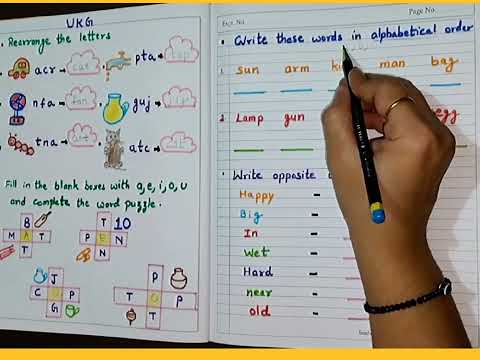 UKG
Rearrange the letters
acr pta tap
nfa fan guj
tna atc
Fill in the blank boxes with a,e,i,o,u
and complete the word puzzle.
8 T 10
M A T P E N
T N
J P
C U P T O P
G T
Page No.
Write these words in alphabetical order
1. sun arm man bag
2. Lamp gun egg
Write opposite
Happy -
Big -
In -
Wet -
Hard -
near -
old -